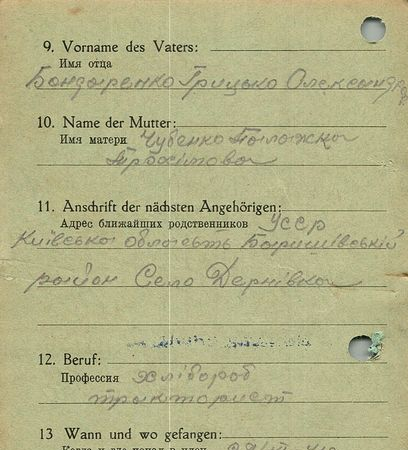 9. Vorname des Vaters:
Имя отца
Бондаренко Грицько Олександров
10. Name der Mutter:
Имя матери Чубенко Палажка
Трохимовна
11. Anschrift der nächsten Angehörigen:
Адрес ближайших родственников УССР
Київська область Баришівській
район Село Дернівка
12. Beruf:
Профессия хлібороб
тракторист
13 Wann und wo gefangen:
Когда и где попал в плен